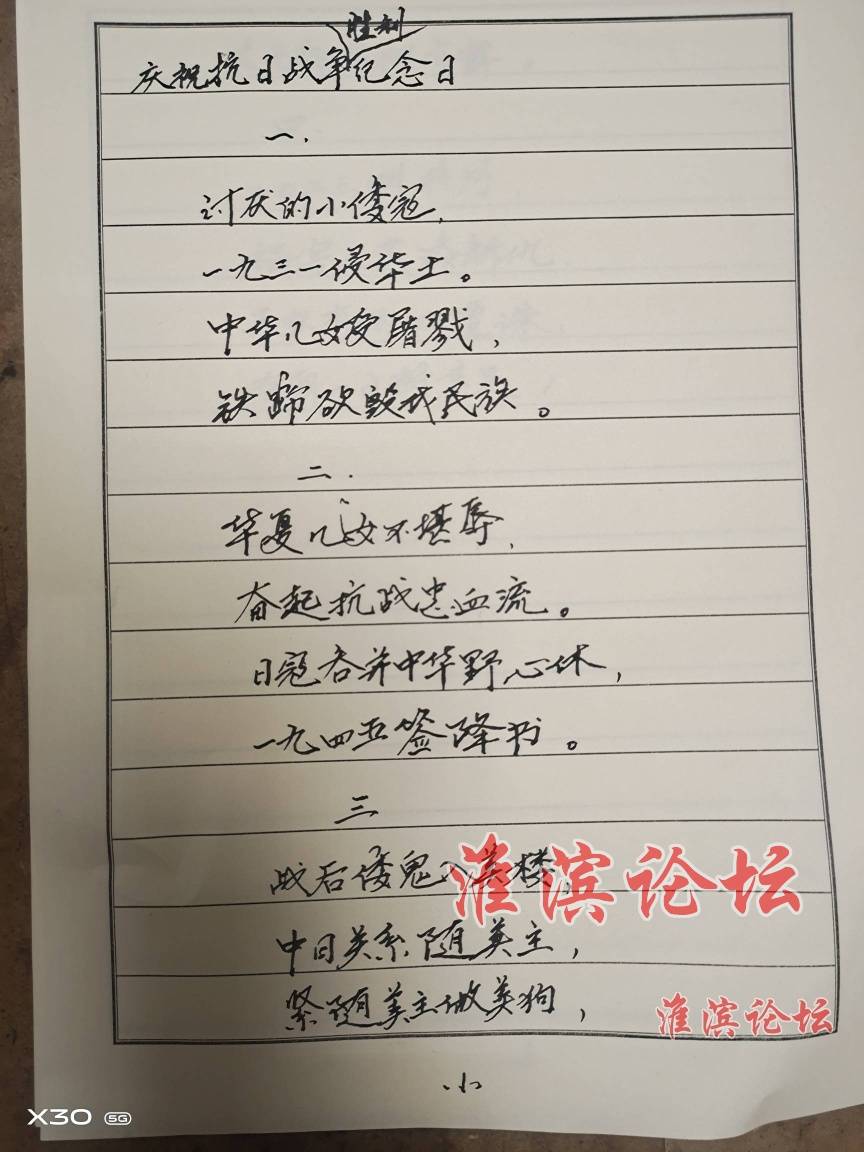 庆祝抗日战争胜利纪念日
一.
讨厌的小倭寇,
一九三一侵华土。
中华儿女受屠戮,
铁蹄欲毁我民族。
二.
华夏儿女不堪辱,
奋起抗战忠血流。
日寇吞并中华野心休,
一九四五签降书。
三
战后倭鬼入美楼,
中日关系随美主,
紧随美主做美狗,
淮滨论坛
淮滨论坛
-1-
X30 5G